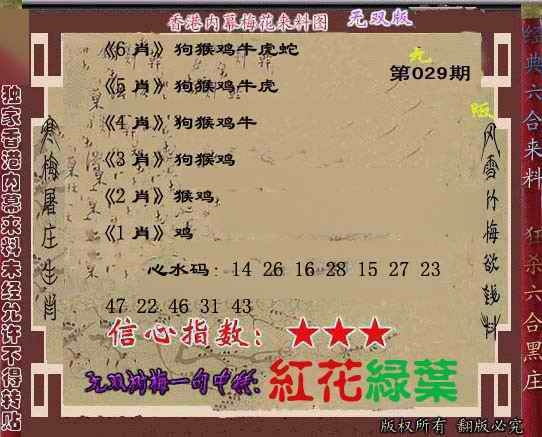 香港内幕梅花来料图 无双版
《6 肖》 狗猴鸡牛虎蛇
无
第029期
《5 肖》 狗猴鸡牛虎
版
《4 肖》 狗猴鸡牛
《3 肖》 狗猴鸡
《2 肖》 猴鸡
《1 肖》 鸡
心水码: 14 26 16 28 15 27 23
47 22 46 31 43
信心指数: ★★★
无双浏梅一句中特: 紅花綠葉
独家香港内幕来料未经允许不得转贴
寒梅屠庄生肖
经典六合来料 狂杀六合黑庄
版权所有 翻版必究